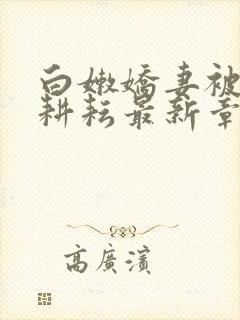 白嫩嬌妻被
耕耘最新章
高廣濱